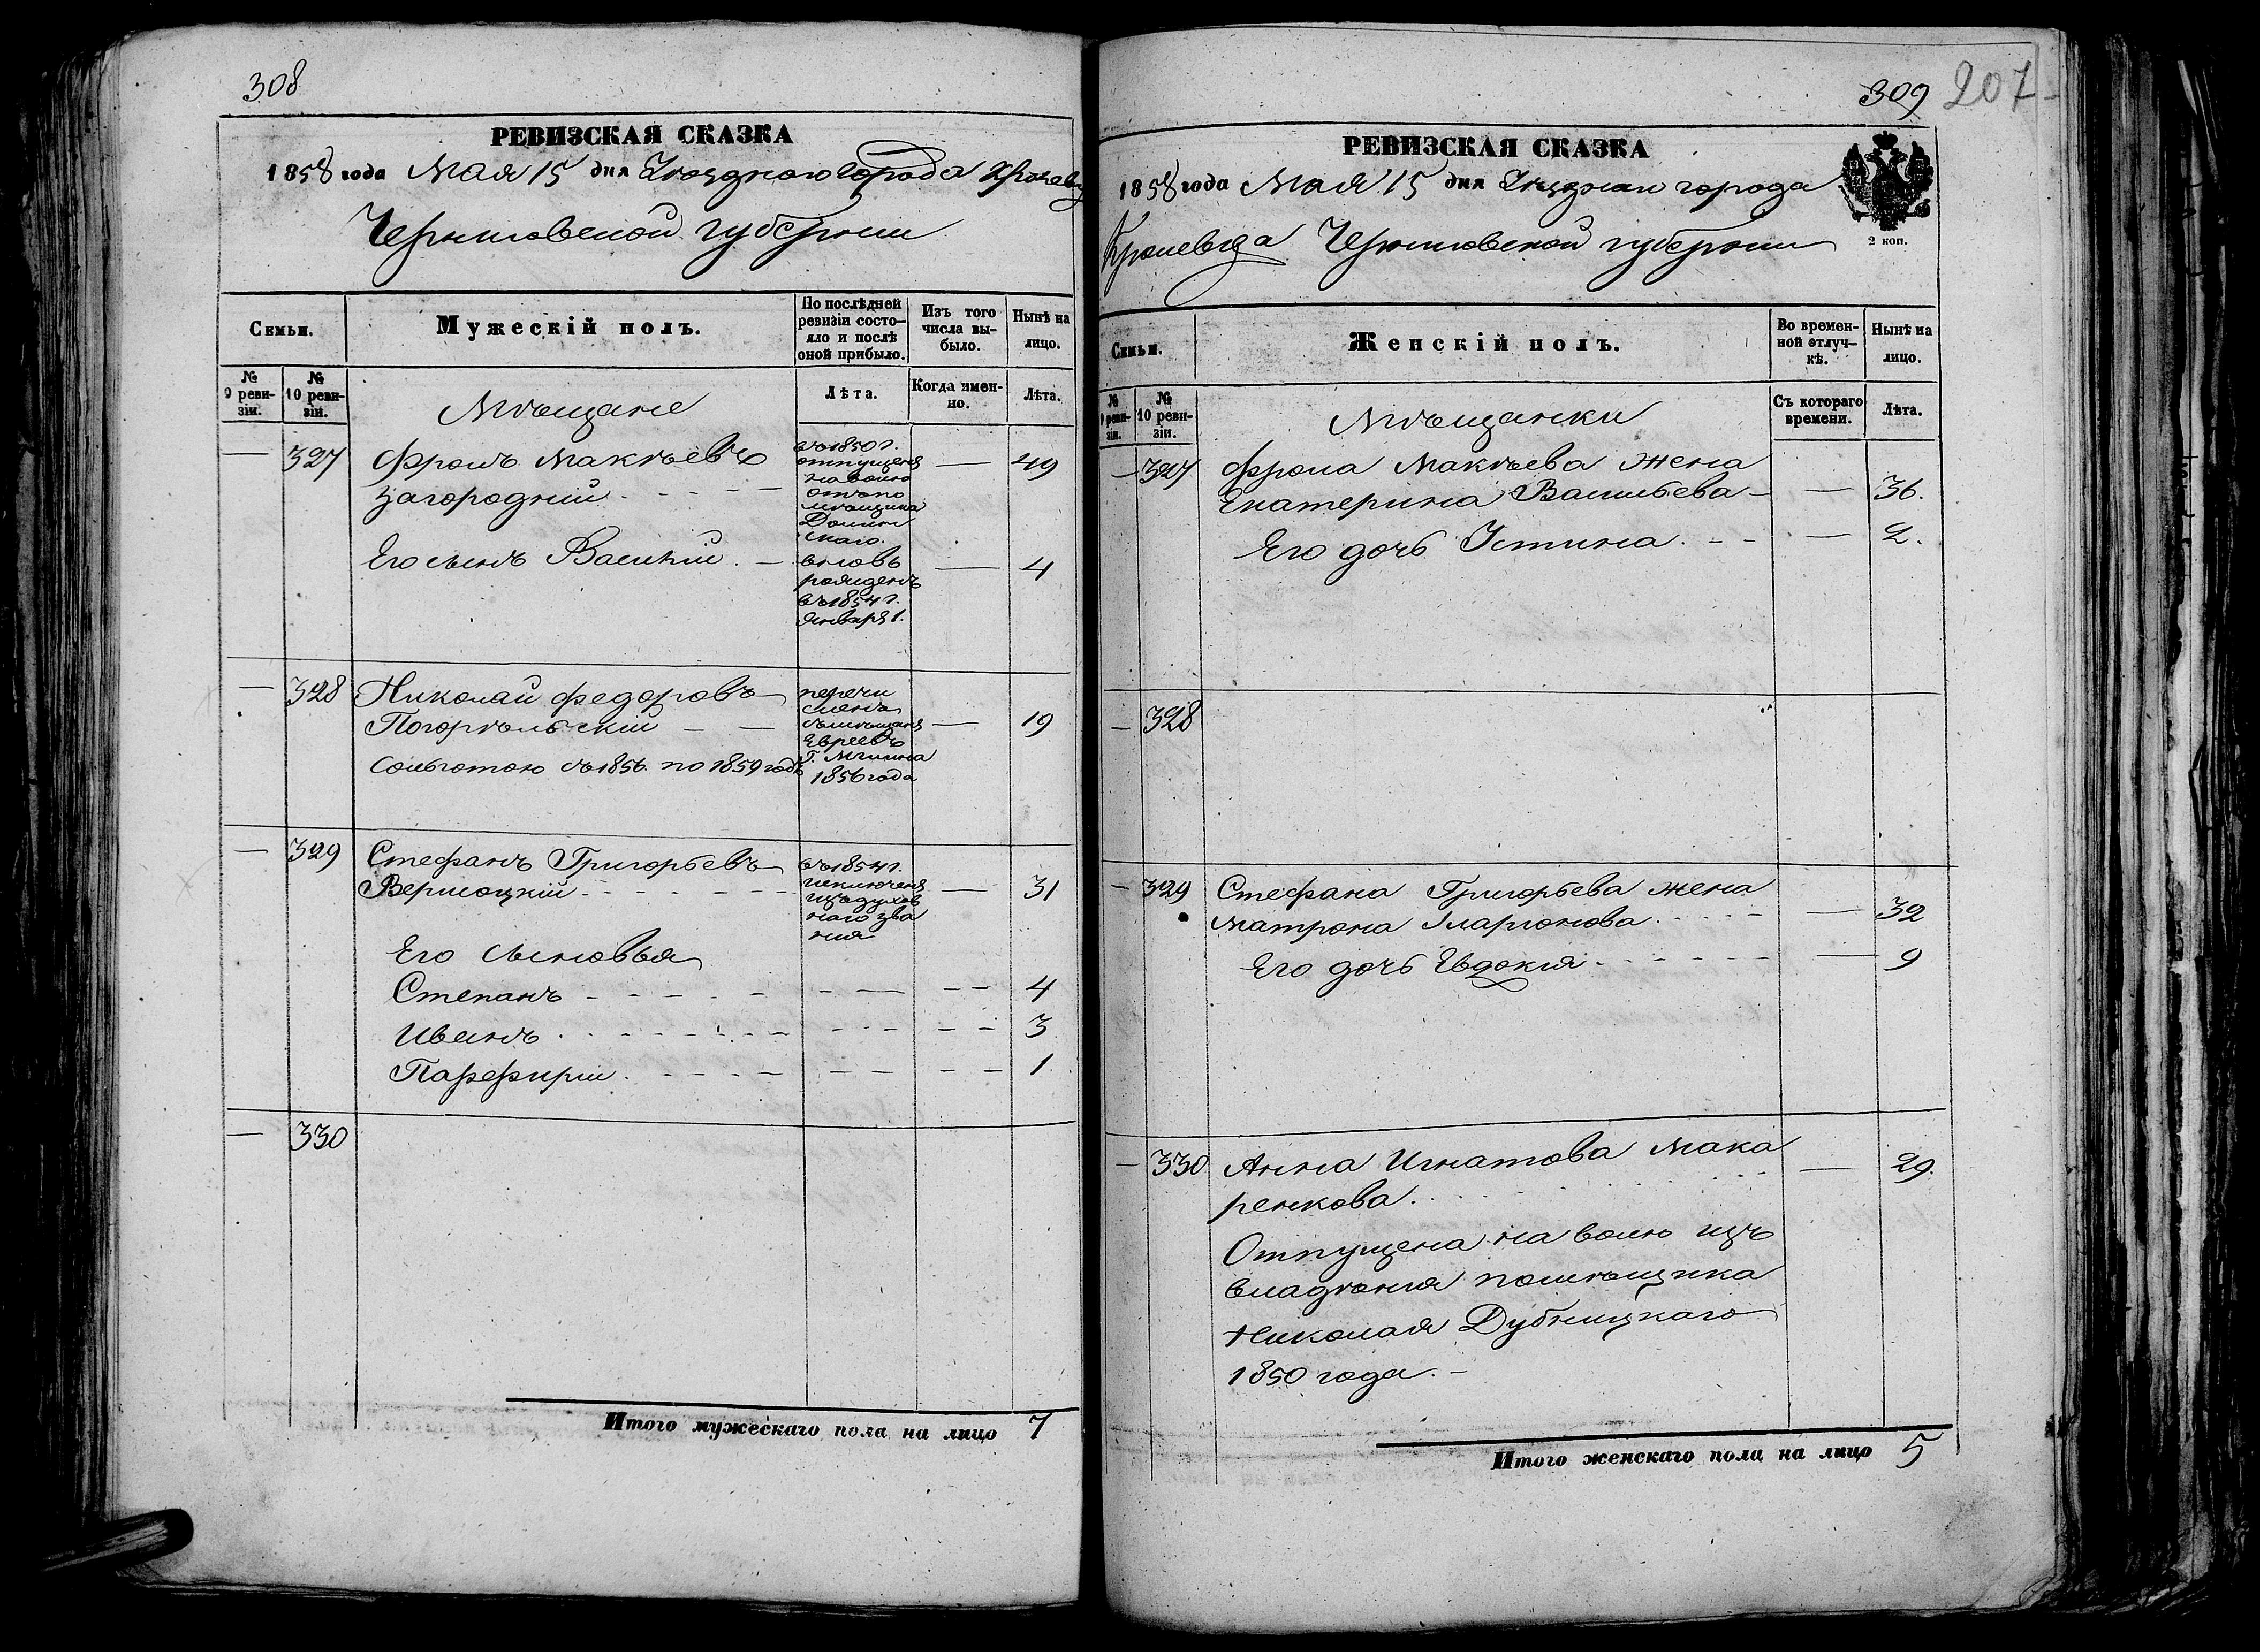 308
РЕВИЗСКАЯ СКАЗКА
1858 года Мая 15 дня Уѣзднаго города
Черниговской губерніи
Семьи.
Мужескій полъ.
По послѣдней ревизіи состо-
яло и послѣ
оной прибыло.
Изъ того
числа вы-
было.
Нынѣ на
лицо.
№
9 реви-
зіи.
№
10 реви-
зіи.
Мѣщане
Лѣта.
Когда имен-
но.
Лѣта.
— 327 Фролъ Макѣевъ — 49
Загородній
въ 1850 г.
отпущенъ
на волю
отъ по
мѣщика
Его сынъ Василій — 4
вновь
рожденъ
въ 1854 г.
Января 1.
— 328 Николай Федоровъ
Погорѣльскій — 19
Сольготою съ 1856 по 1859 годъ
перечи
сленъ
Евреевъ
Г. Мглина
1856 года
— 329 Стефанъ Григорьевъ
— 31
въ 1854 г.
исключенъ
изъ духов
наго зва
нія
Его сыновья
Степанъ 4
Иванъ 3
Парфирій 1
— 330
Итого мужескаго пола на лицо 7
309 207
РЕВИЗСКАЯ СКАЗКА
1858 года Мая 15 дня Уѣзднаго города
Кролевца Черниговской губерніи
2 коп.
Семьи.
Женскій полъ.
Во времен-
ной отлуч-
кѣ.
Нынѣ на
лицо.
№
9 реви-
зіи.
№
10 реви-
зіи.
Мѣщанки
Съ котораго
времени.
Лѣта.
— 327 Фрола Макѣева жена
Екатерина Васильева — 36.
Его дочь Устина — 2.
— 328
— 329 Стефана Григорьева жена
Матрона Иларионова — 32
Его дочь Евдокія — 9
— 330 Анна Игнатова Мака — 29.
ренкова.
Отпущена на волю изъ
владѣнія помѣщика
Николая Дубницкаго
1850 года. —
Итого женскаго пола на лицо 5